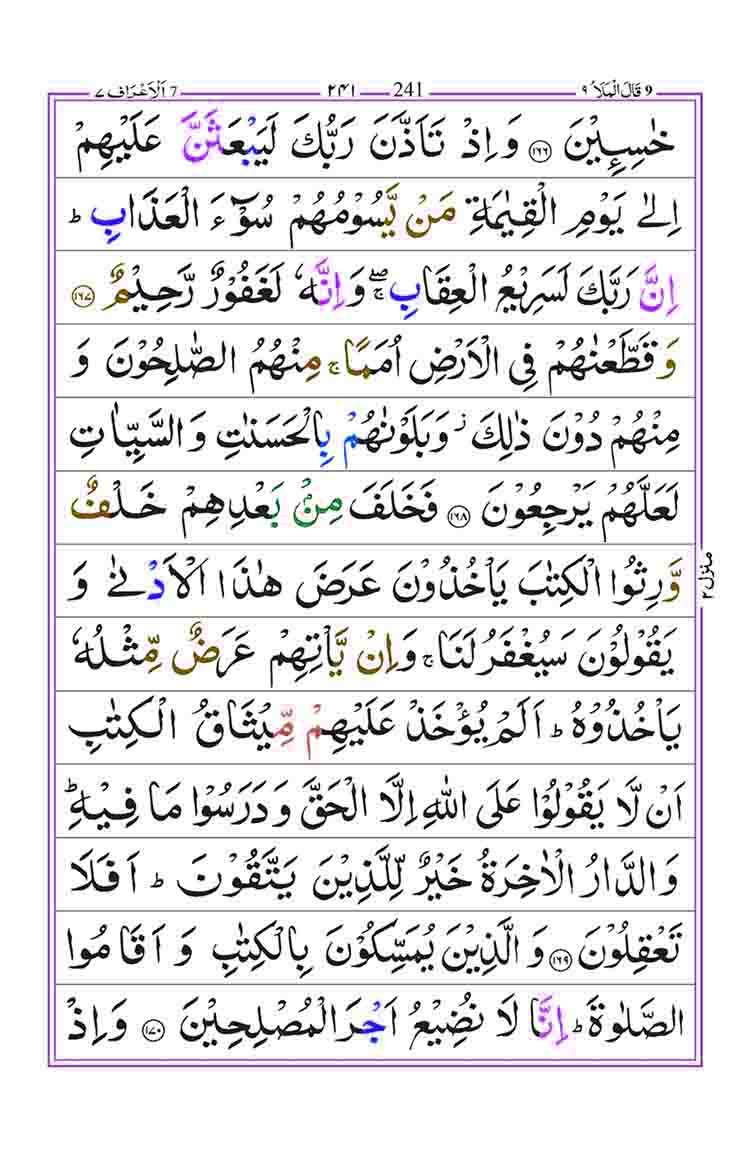 ٩ قَالَ الْمَلَاُ 9 241 ٢٤١ 7 اَلْاَعْرَاف ٧
خٰسِـِٕيْنَ ۝١٦٦ وَ اِذْ تَاَذَّنَ رَبُّكَ لَيَبْعَثَنَّ عَلَيْهِمْ
اِلٰى يَوْمِ الْقِيٰمَةِ مَنْ يَّسُوْمُهُمْ سُوْٓءَ الْعَذَابِ ؕ
اِنَّ رَبَّكَ لَسَرِيْعُ الْعِقَابِ ۚۖ وَ اِنَّهٗ لَغَفُوْرٌ رَّحِيْمٌ ۝١٦٧
وَ قَطَّعْنٰهُمْ فِى الْاَرْضِ اُمَمًا ۚ مِنْهُمُ الصّٰلِحُوْنَ وَ
مِنْهُمْ دُوْنَ ذٰلِكَ ؗ وَبَلَوْنٰهُمْ بِالْحَسَنٰتِ وَ السَّيِّاٰتِ
لَعَلَّهُمْ يَرْجِعُوْنَ ۝١٦٨ فَخَلَفَ مِنْۢ بَعْدِهِمْ خَلْفٌ
وَّرِثُوا الْكِتٰبَ يَاْخُذُوْنَ عَرَضَ هٰذَا الْاَدْنٰى وَ
يَقُوْلُوْنَ سَيُغْفَرُ لَنَا ۚ وَ اِنْ يَّاْتِهِمْ عَرَضٌ مِّثْلُهٗ
يَاْخُذُوْهُ ؕ اَلَمْ يُؤْخَذْ عَلَيْهِمْ مِّيْثَاقُ الْكِتٰبِ
اَنْ لَّا يَقُوْلُوْا عَلَى اللّٰهِ اِلَّا الْحَقَّ وَ دَرَسُوْا مَا فِيْهِ ؕ
وَ الدَّارُ الْاٰخِرَةُ خَيْرٌ لِّلَّذِيْنَ يَتَّقُوْنَ ؕ اَفَلَا
تَعْقِلُوْنَ ۝١٦٩ وَ الَّذِيْنَ يُمَسِّكُوْنَ بِالْكِتٰبِ وَ اَقَامُوا
الصَّلٰوةَ ؕ اِنَّا لَا نُضِيْعُ اَجْرَ الْمُصْلِحِيْنَ ۝١٧٠ وَ اِذْ
منزل ٢